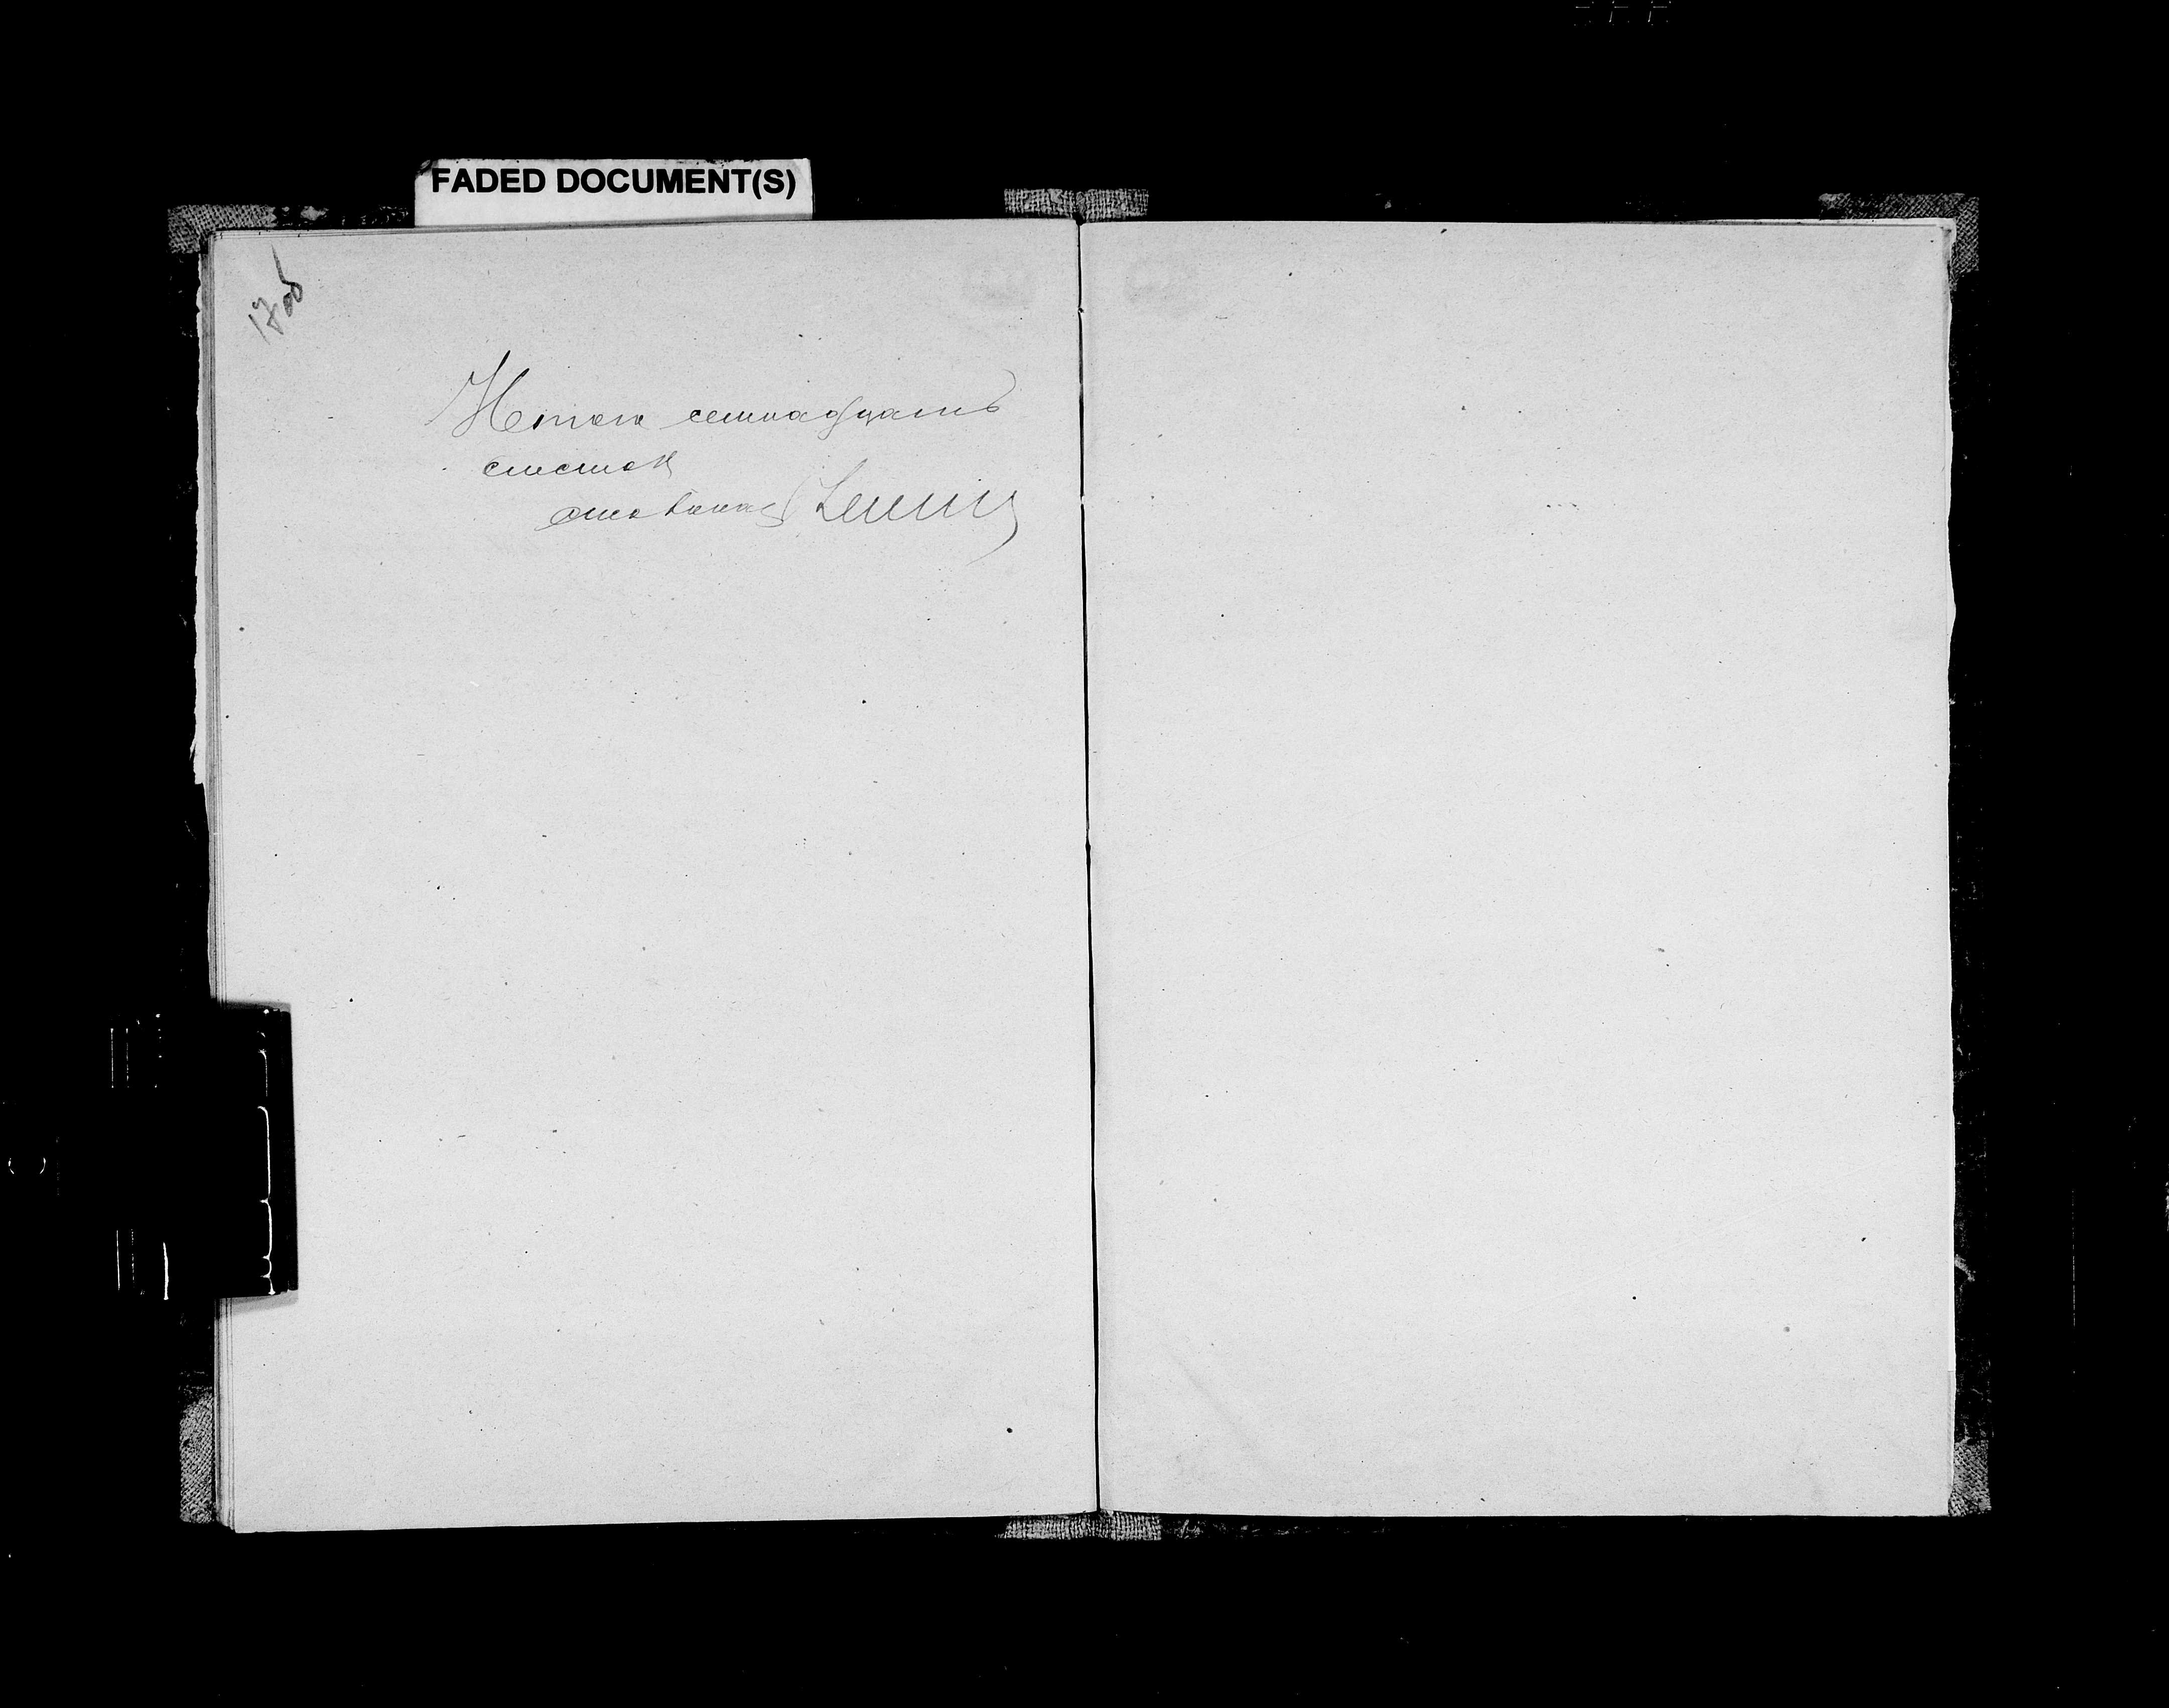 FADED DOCUMENT(S)
17об
Итого семнадцать
листов